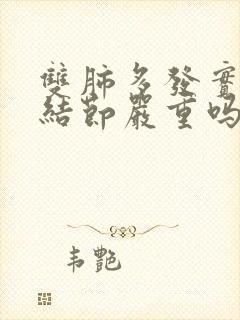 雙肺多發實
結節嚴重嗎
韦艷